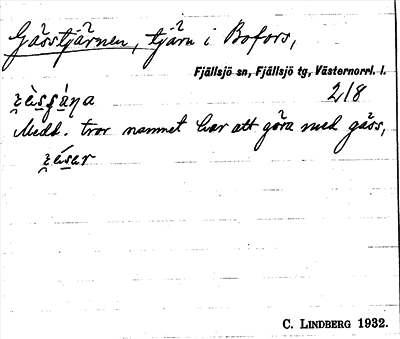 Gåsstjärnen, tjärn i Bofors,
Fjällsjö sn, Fjällsjö tg, Västernorrl. l.
2/8
Medd. tror namnet har att göra med gåss,
C. LINDBERG 1932.